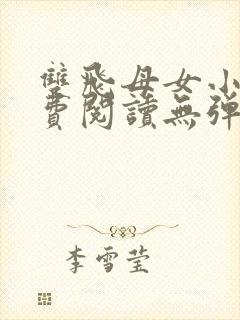 雙飛母女小
費閱讀無彈
李雪莹